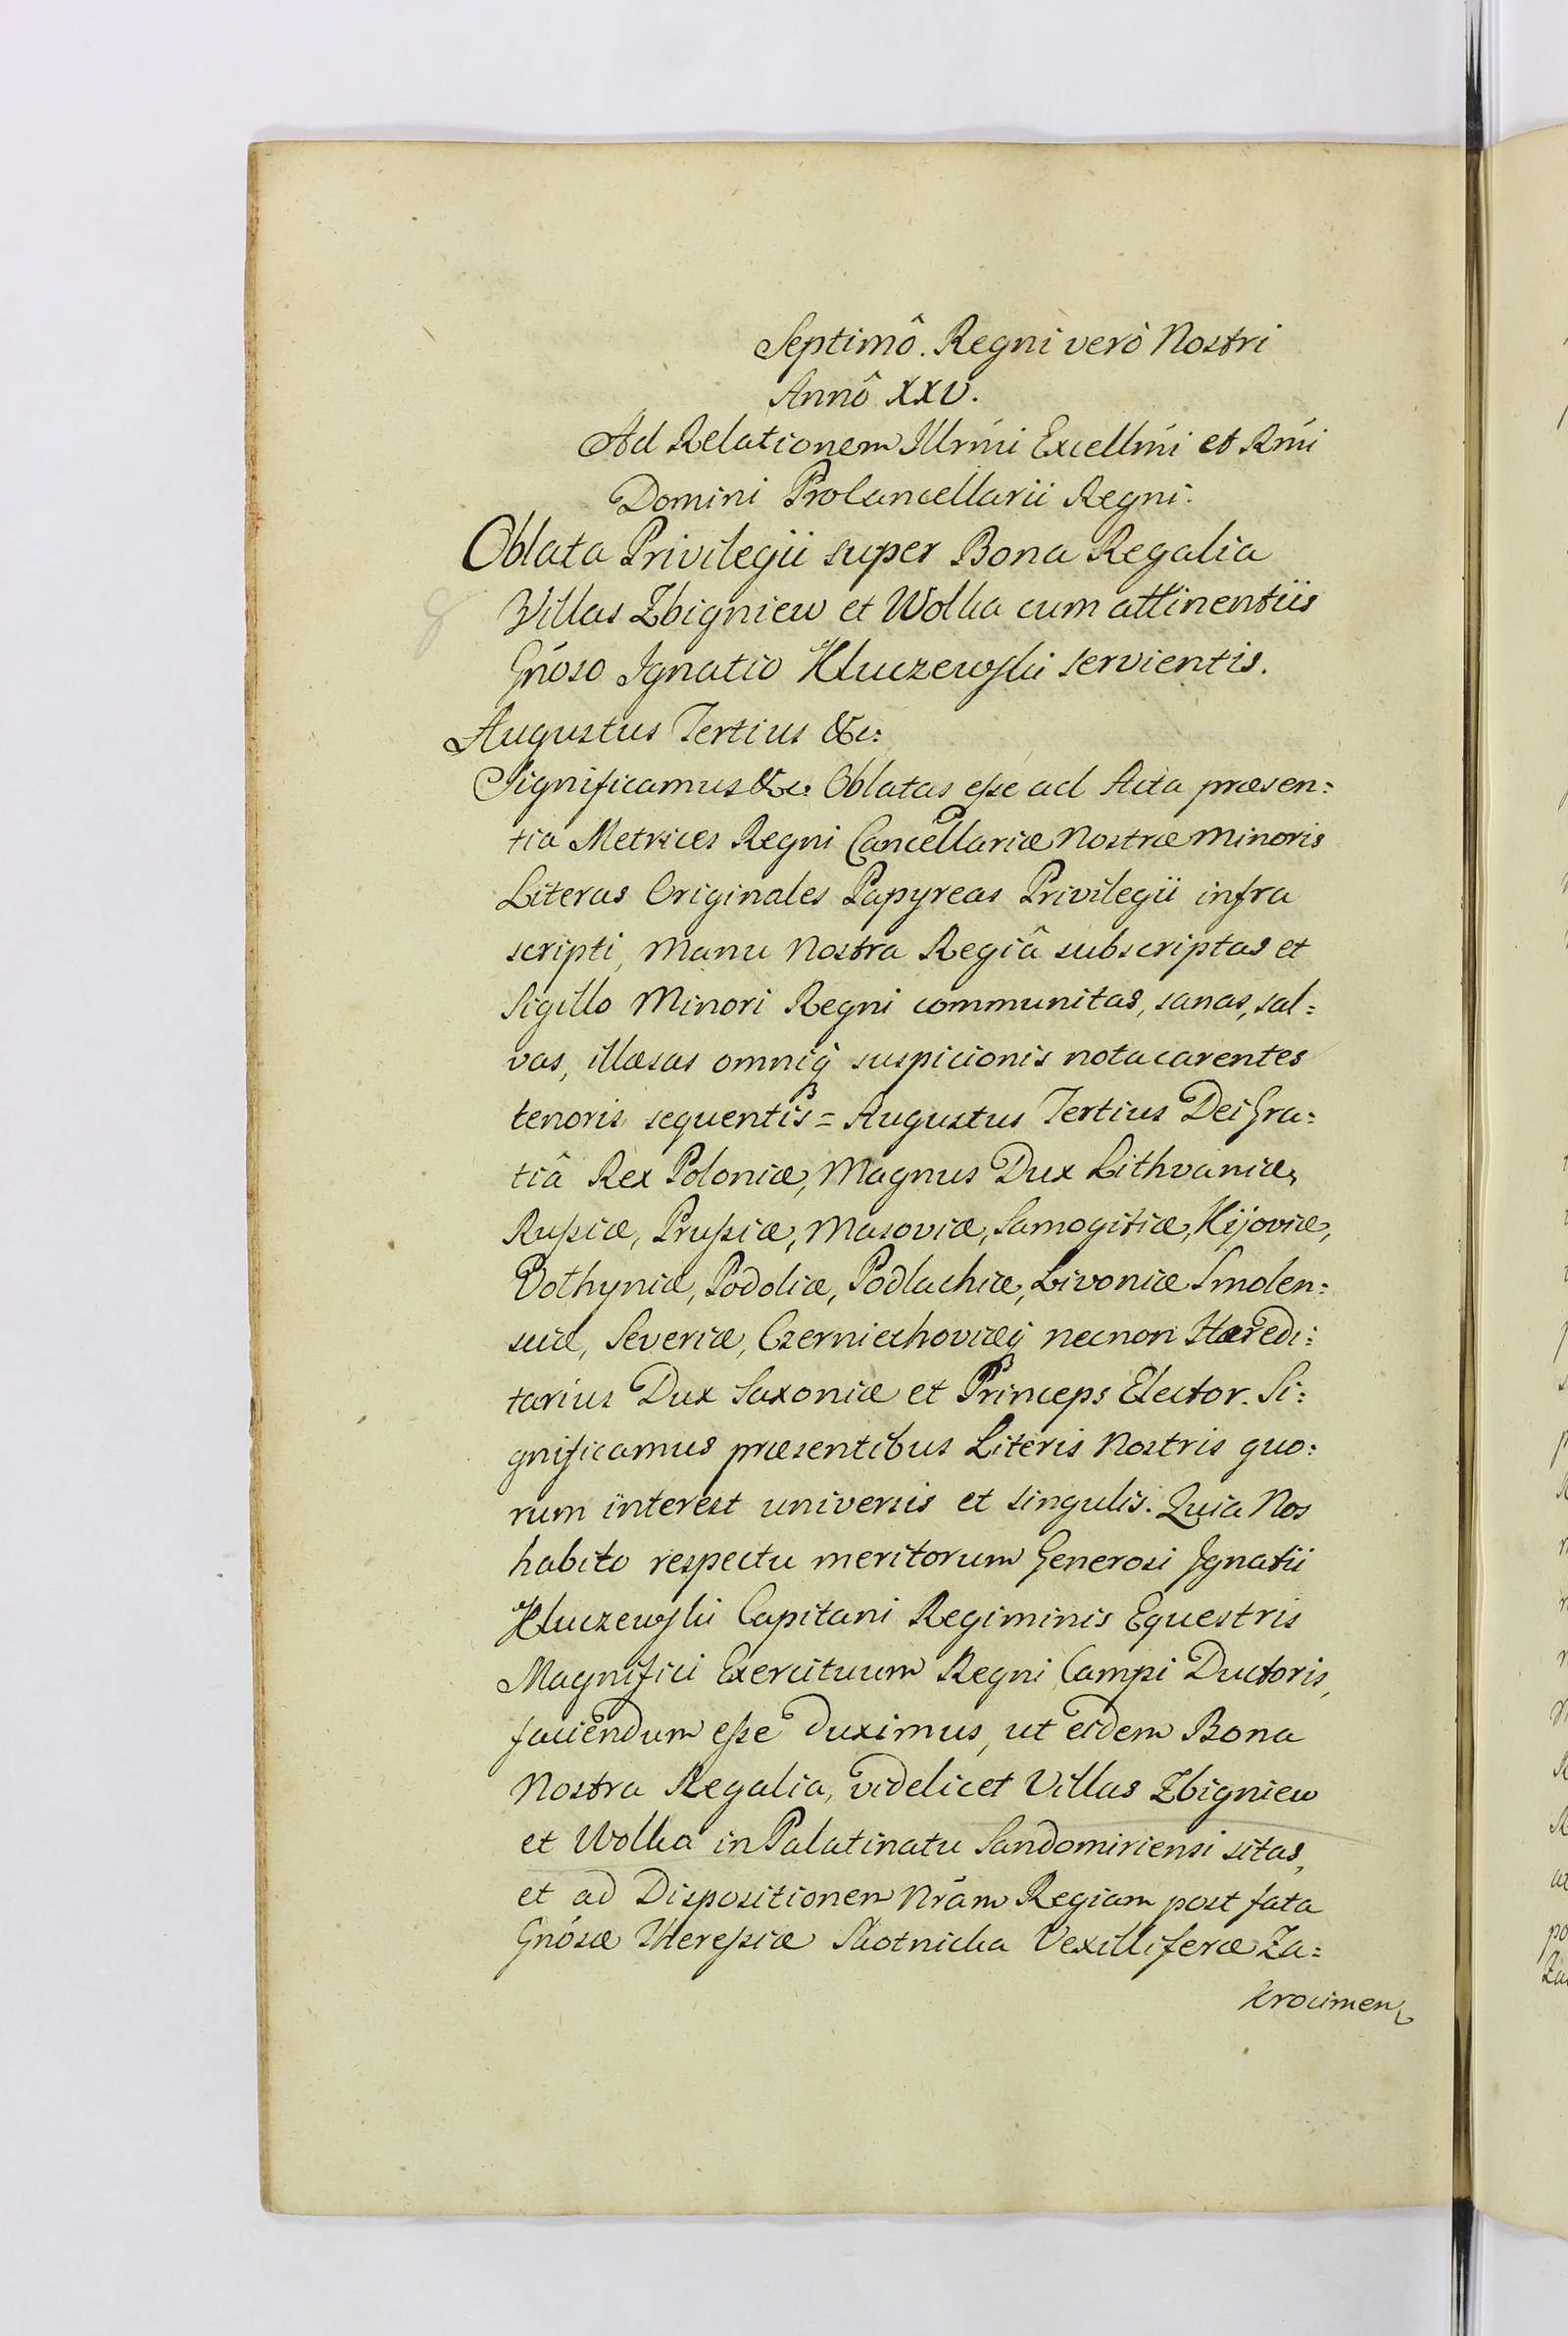 Septimô. Regni verò Nostri
Annô XXV.
Ad Relationem Illrmi Excellmi et Rmi
Domini ProCancellarii Regni.
Oblata Privilegii super Bona Regalia
Villas Zbigniew et Wolka cum attinentiis
Gnoso Ignatio Kluczewski servientis.
Augustus Tertius &c:
Significamus &c: Oblatas eße ad Acta præsen:
tia Metrices Regni Cancellariæ Nostræ Minoris
Literas Originales Papyreas Privilegii infra
scripti, Manu Nostra Regiâ subscriptas et
Sigillo Minori Regni communitas, sanas, sal:
vas, illæsas omniq suspicionis nota carentes
tenoris sequentis = Augustus Tertius Dei Gra:
tiâ Rex Poloniæ, Magnus Dux Lithvaniæ,
Rußiæ, Prußiæ, Masoviæ, Samogitiæ, Kijoviæ,
Volhyniæ, Podoliæ, Podlachiæ, Livoniæ Smolen:
sciæ, Severiæ, Czerniechoviæq necnon Hæredi:
tarius Dux Saxoniæ et Princeps Elector. Si:
gnificamus præsentibus Literis Nostris quo:
rum interest universis et singulis. Quia Nos
habito respectu meritorum Generosi Ignatii
Kluczewski Capitani Regiminis Equestris
Magnifici Exercituum Regni Campi Ductoris,
faciendum eße duximus, ut eidem Bona
Nostra Regalia, videlicet Villas Zbigniew
et Wolka in Palatinatu Sandomiriensi sitas,
et ad Dispositionem Nram Regiam post fata
Gnosæ Thereßiæ Skotnicka Vexilliferæ Za:
krocimen